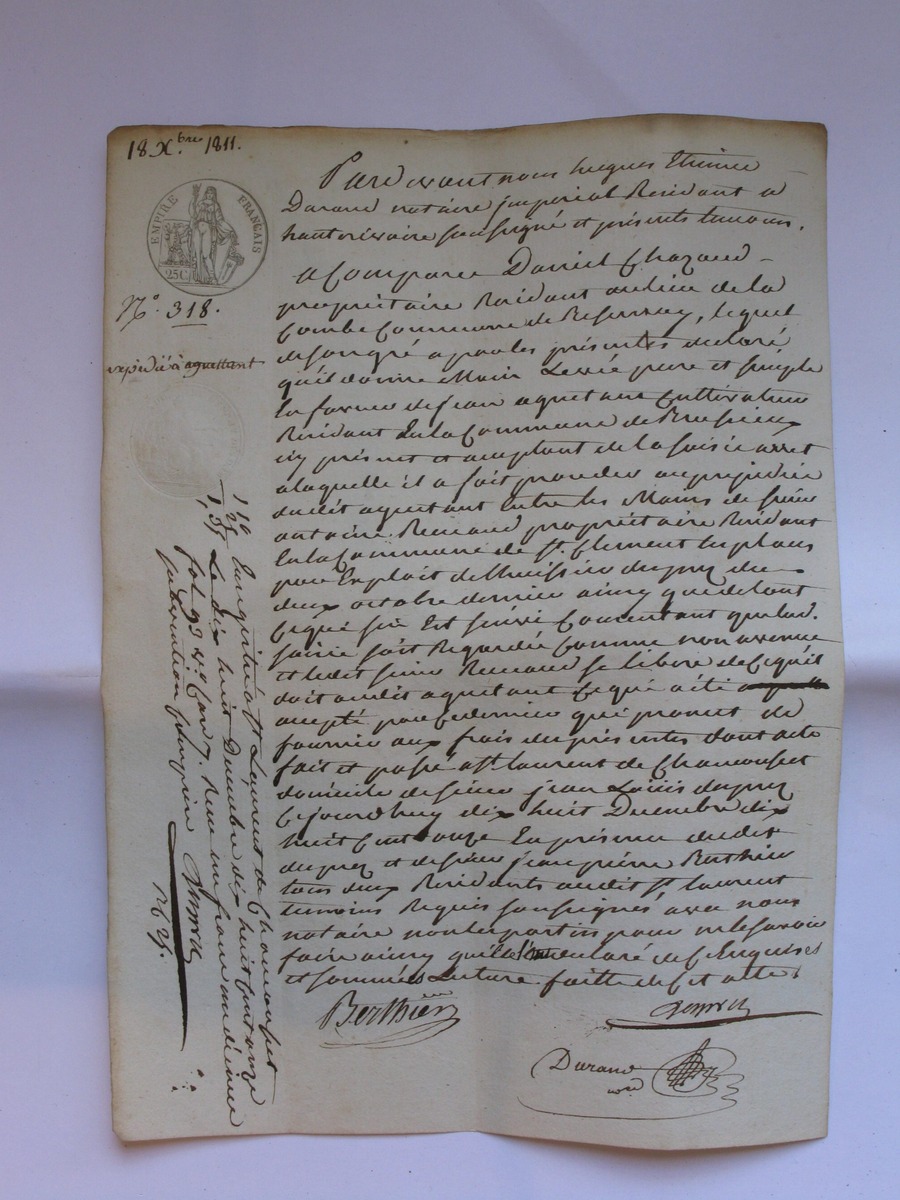 18 Xbre 1811.
EMPIRE FRANÇAIS
25C
No. 318.
expédié à aguettant
Pardevant nous hugues Etienne
Durand notaire jmperial Residant a
hauterivoire soussigné et présents temoins.
a Comparu Daniel Chazaud
propriétaire Residant au lieu de la
Combe Commune de Bessenay, lequel
de son gré a par les présentes declaré
qu'il donne Main Levée pure et simple
la faveur de jean aguetant Cultivateur
Residant En la Commune de Brussieux
icy présent et acceptant de la saisie arret
a laquelle il a fait proceder au prejudice
dudit aguettant Entre les Mains de sieur
antoine Renaud propriétaire Residant
En la Commune de St. Clement les places
par Exploit de l'huissier dupuy du
deux octobre dernier ainsy que de tout
ce qui s'en Est suivi Consentant que lad.
saisie soit Regardée Comme non avenue
et ledit sieur Renaud se libere de Ce qu'il
doit audit aguetant Ce qui a été
accepté par Ce dernier qui promet de
fournir aux frais des présentes dont acte
fait et passé a St. laurent de Chamousset
domicile de sieur jean Loüis dupuy
Cejourdhuy dix huit Decembre dix
huit Cent onze En présence dudit
dupuy et de sieur jean pierre Berthier
tous deux Residants audit St. laurent
temoins Requis soussignés avec nous
notaire non les parties pour ne le savoir
faire ainsy qu'ils l'ont declaré de Ce Enquises
et sommées Lecture faitte de Cet acte.
Berthier
Dupuy
Durand
nre
16
1, 25
1, 35
Enregistré a St Laurent de Chamousset
Le dix huit Decembre dix huit Cent onze
fol. 93 vo. Case 7. Reçu un franc audixieme
subvention Comprise Dupuy
1625.